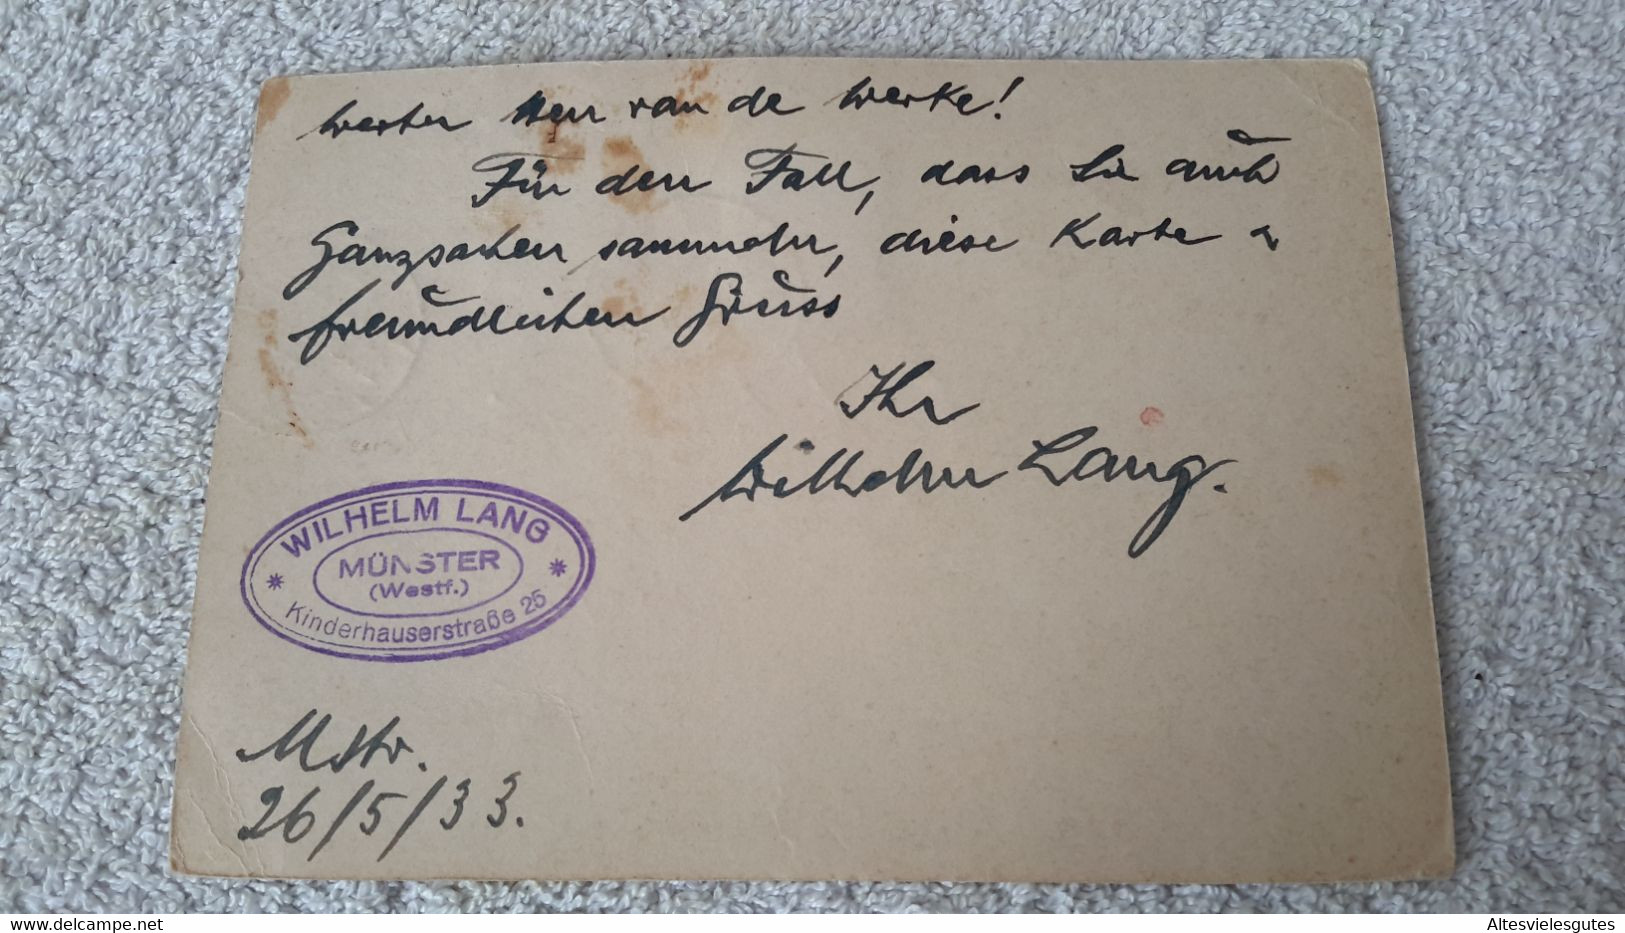 Werter Herr van de Werke!
Für den Fall, dass Sie auch
Ganzsachen sammeln, diese Karte u
freundlichen Gruss
Ihr
Wilhelm Lang.
WILHELM LANG
MÜNSTER
(Westf.)
Kinderhauserstraße 25
Mstr.
26/5/33.
www.delcampe.net
Altesvielesgutes